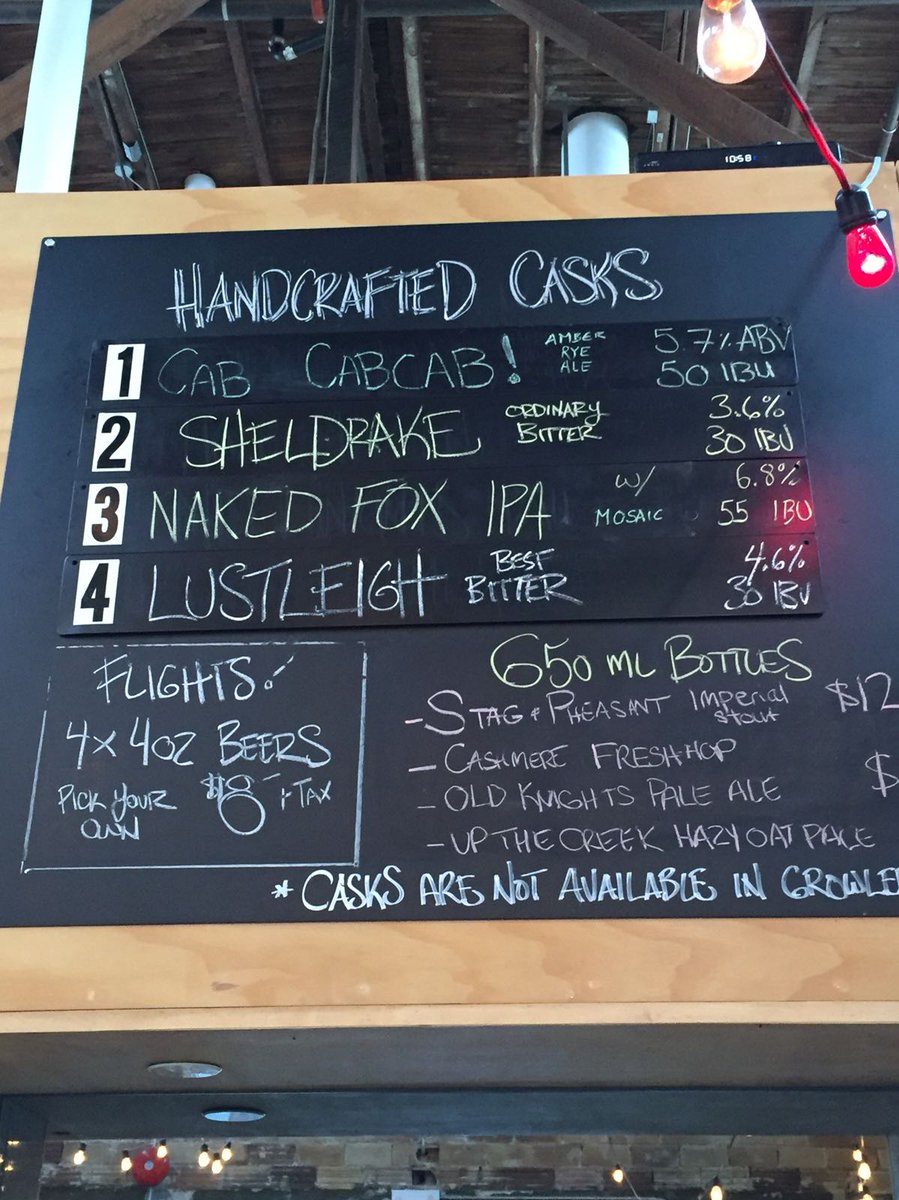 10:58
HANDCRAFTED CASKS
1 CAB CABCAB! AMBER RYE ALE 5.7% ABV 50 IBU
2 SHELDRAKE ORDINARY BITTER 3.6% 30 IBU
3 NAKED FOX IPA W/ MOSAIC 6.8% 55 IBU
4 LUSTLEIGH BEST BITTER 4.6% 30 IBU
FLIGHTS!
4 x 4oz BEERS
PICK YOUR OWN $8 + TAX
650 ML BOTTLES
- STAG & PHEASANT Imperial stout $12
- CASHMERE FRESH HOP
- OLD KNIGHTS PALE ALE $
- UP THE CREEK HAZY OAT PALE
* CASKS ARE NOT AVAILABLE IN GROWLE